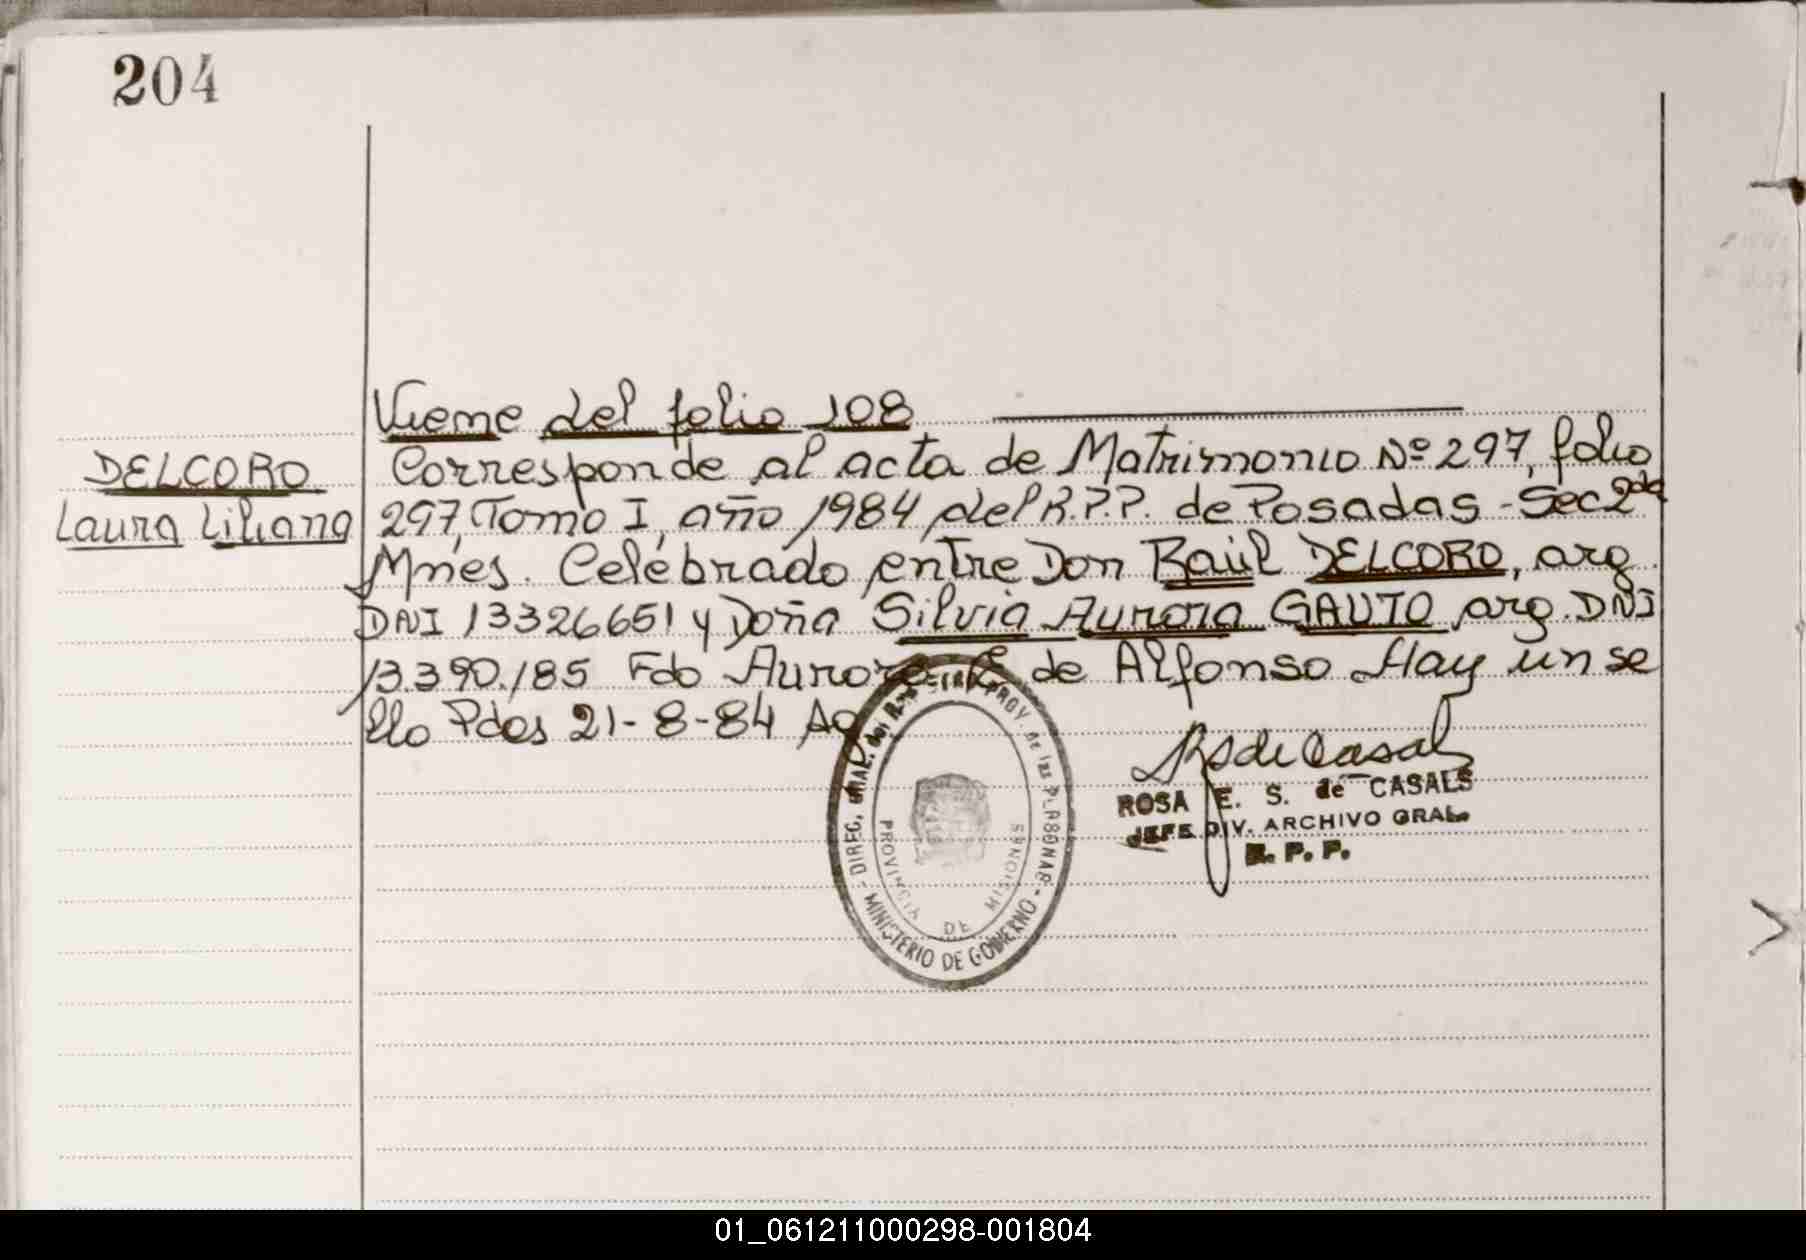 204
Viene del folio 108
DELCORO
Laura Liliana
Corresponde al acta de Matrimonio Nº 297, folio
297, Tomo I, año 1984 del R.P.P. de Posadas - Sec 2da
Mnes. Celebrado entre Don Raúl DELCORO, arg.
DNI 13326651 y Doña Silvia Aurora GAUTO arg. DNI
13.390.185 Fdo Aurora de Alfonso Hay un se
llo Pdas 21-8-84
RS de Casals
ROSA E. S. de CASALS
JEFE DIV. ARCHIVO GRAL.
R. P. P.
DIREC. GRAL. del PROV. de las PERSONAS
PROVINCIA DE MISIONES
- MINISTERIO DE GOBIERNO -
01_061211000298-001804